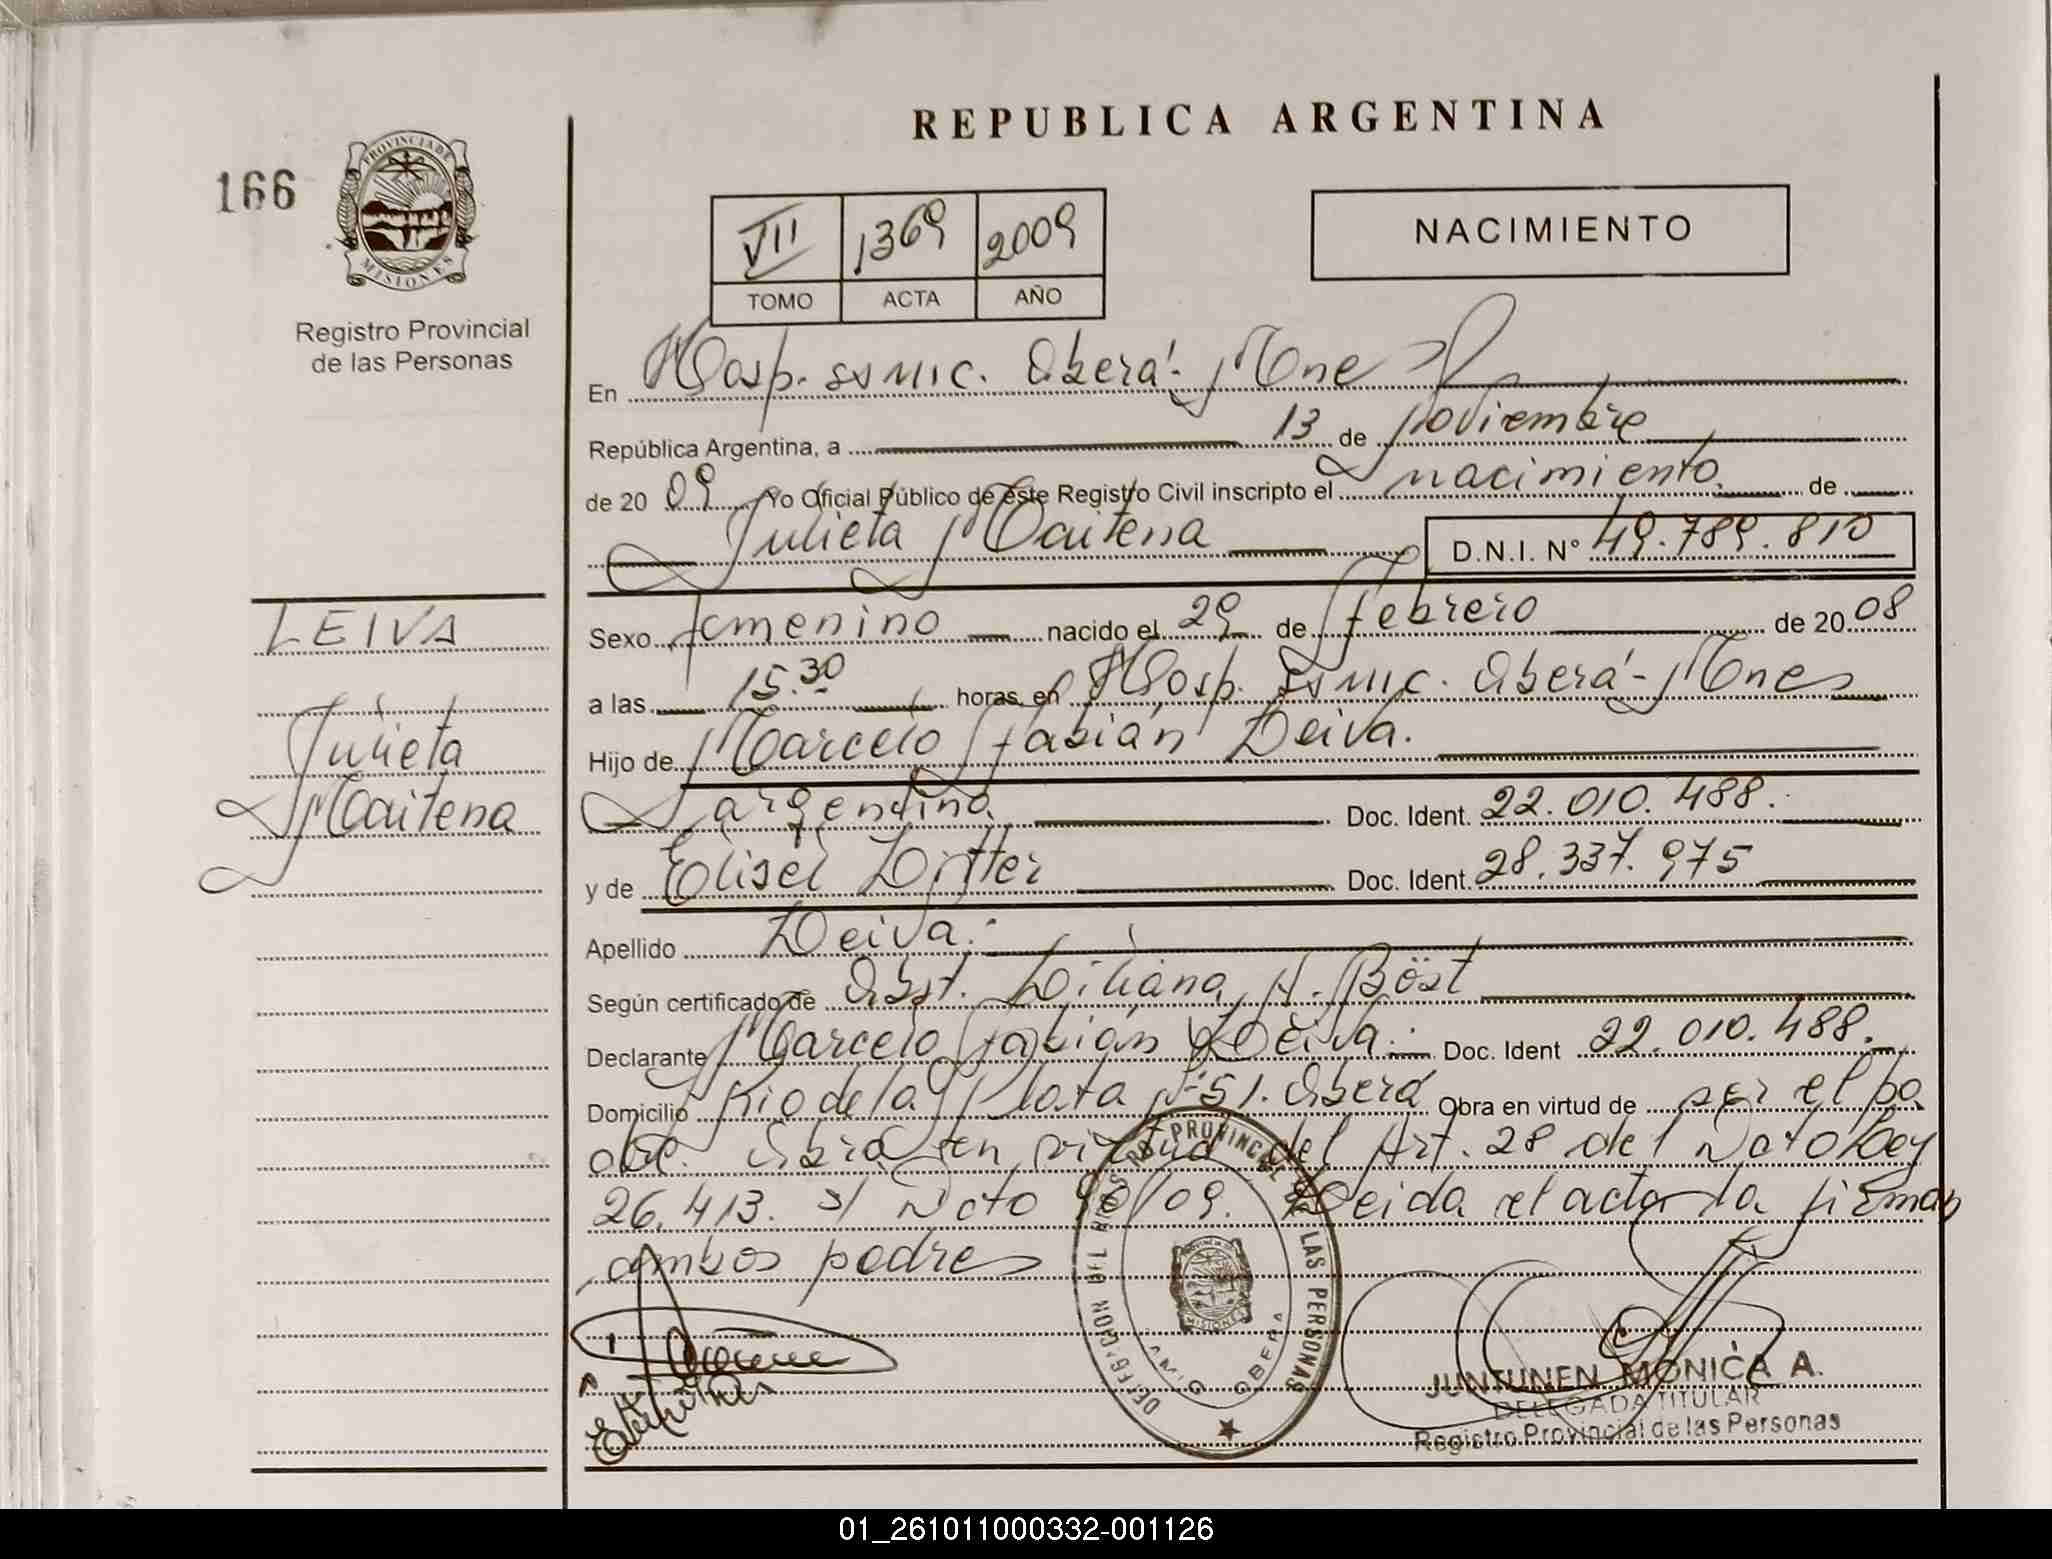 REPUBLICA ARGENTINA
166
PROVINCIA DE
MISIONES
Registro Provincial
de las Personas
VII 1369 2009
TOMO ACTA AÑO
NACIMIENTO
En Hosp. SSMIC. Oberá - Mnes
República Argentina, a 13 de noviembre
de 20 09 Yo Oficial Público de este Registro Civil inscripto el nacimiento. de
Julieta Maitena D.N.I. N° 49.789.810
LEIVA
Julieta
Maitena
Sexo femenino nacido el 29 de febrero de 20 08
a las 15.30 horas, en Hosp. SSMIC. Oberá - Mnes
Hijo de Marcelo Fabián Leiva.
argentino. Doc. Ident. 22.010.488.
y de Elisel Ditter Doc. Ident. 28.337.975
Apellido Leiva.
Según certificado de Obst. Liliana A. Böst
Declarante Marcelo Fabián Leiva. Doc. Ident 22.010.488.
Domicilio Rio de la Plata Nº 51. Oberá Obra en virtud de ser el pa
dre. Obra en virtud del Art. 28 del Dcto Ley
26.413. s/ Dcto 90/09. Leida el acta la firman
ambos padres
DELEGACION DEL REGISTRO PROVINCIAL DE LAS PERSONAS
MISIONES
OBERA
JUNTUNEN MONICA A.
DELEGADA TITULAR
Registro Provincial de las Personas
01_261011000332-001126